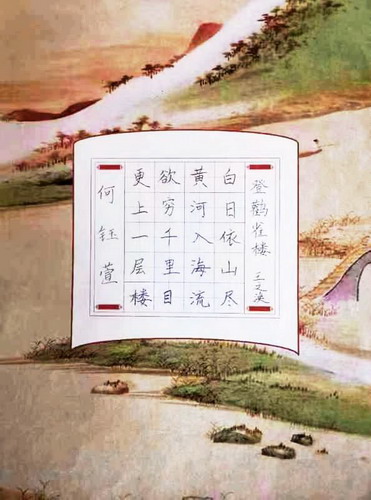 登鹳雀楼 王之涣
白日依山尽
黄河入海流
欲穷千里目
更上一层楼
何钰萱